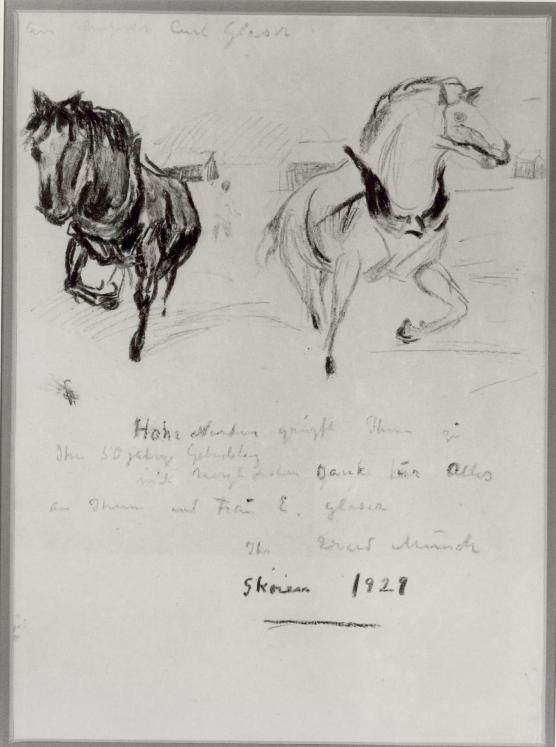 Curt Glaser
Hohe Norden grüszt Ihnen zu
Ihr 50 jährige Geburtstag
Dank für Alles
an Ihnen und Frau E. Glaser
Ihr Edvard Munch
Skøien 1929